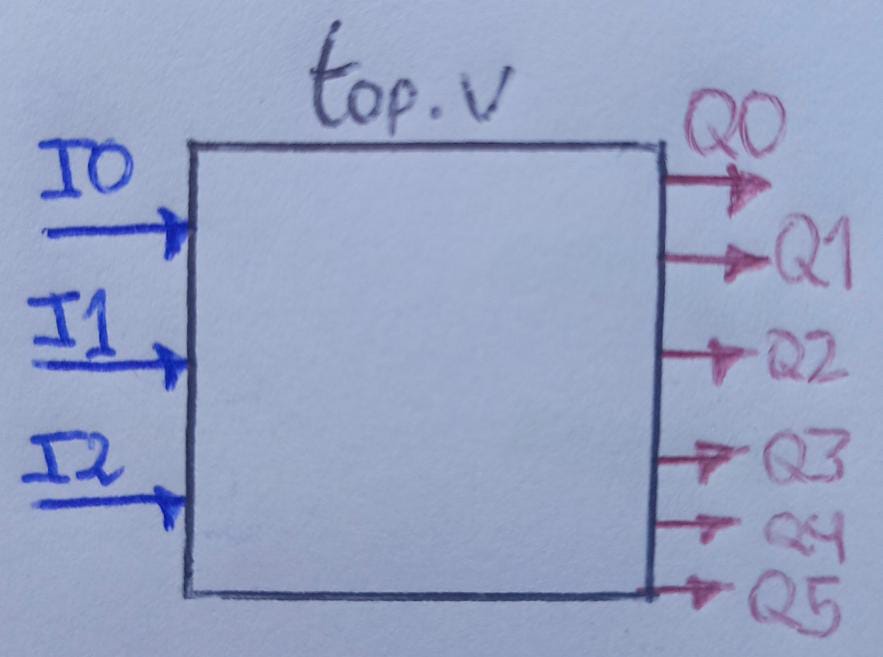 top.v
I0
I1
I2
Q0
Q1
Q2
Q3
Q4
Q5